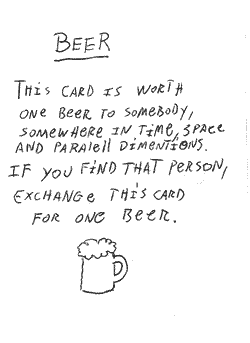 BEER
THIS CARD IS WORTH
ONE BEER TO SOMEBODY,
SOMEWHERE IN TIME, SPACE
AND PARALELL DIMENTIONS.
IF YOU FIND THAT PERSON,
EXCHANGE THIS CARD
FOR ONE BEER.